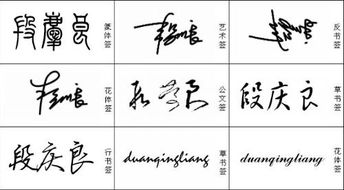 段庆良 篆体签
艺术签
反书签
花体签
段庆良 公文签
段庆良 草书签
段庆良 行书签
duanqingliang 草书签
duanqingliang 花体签